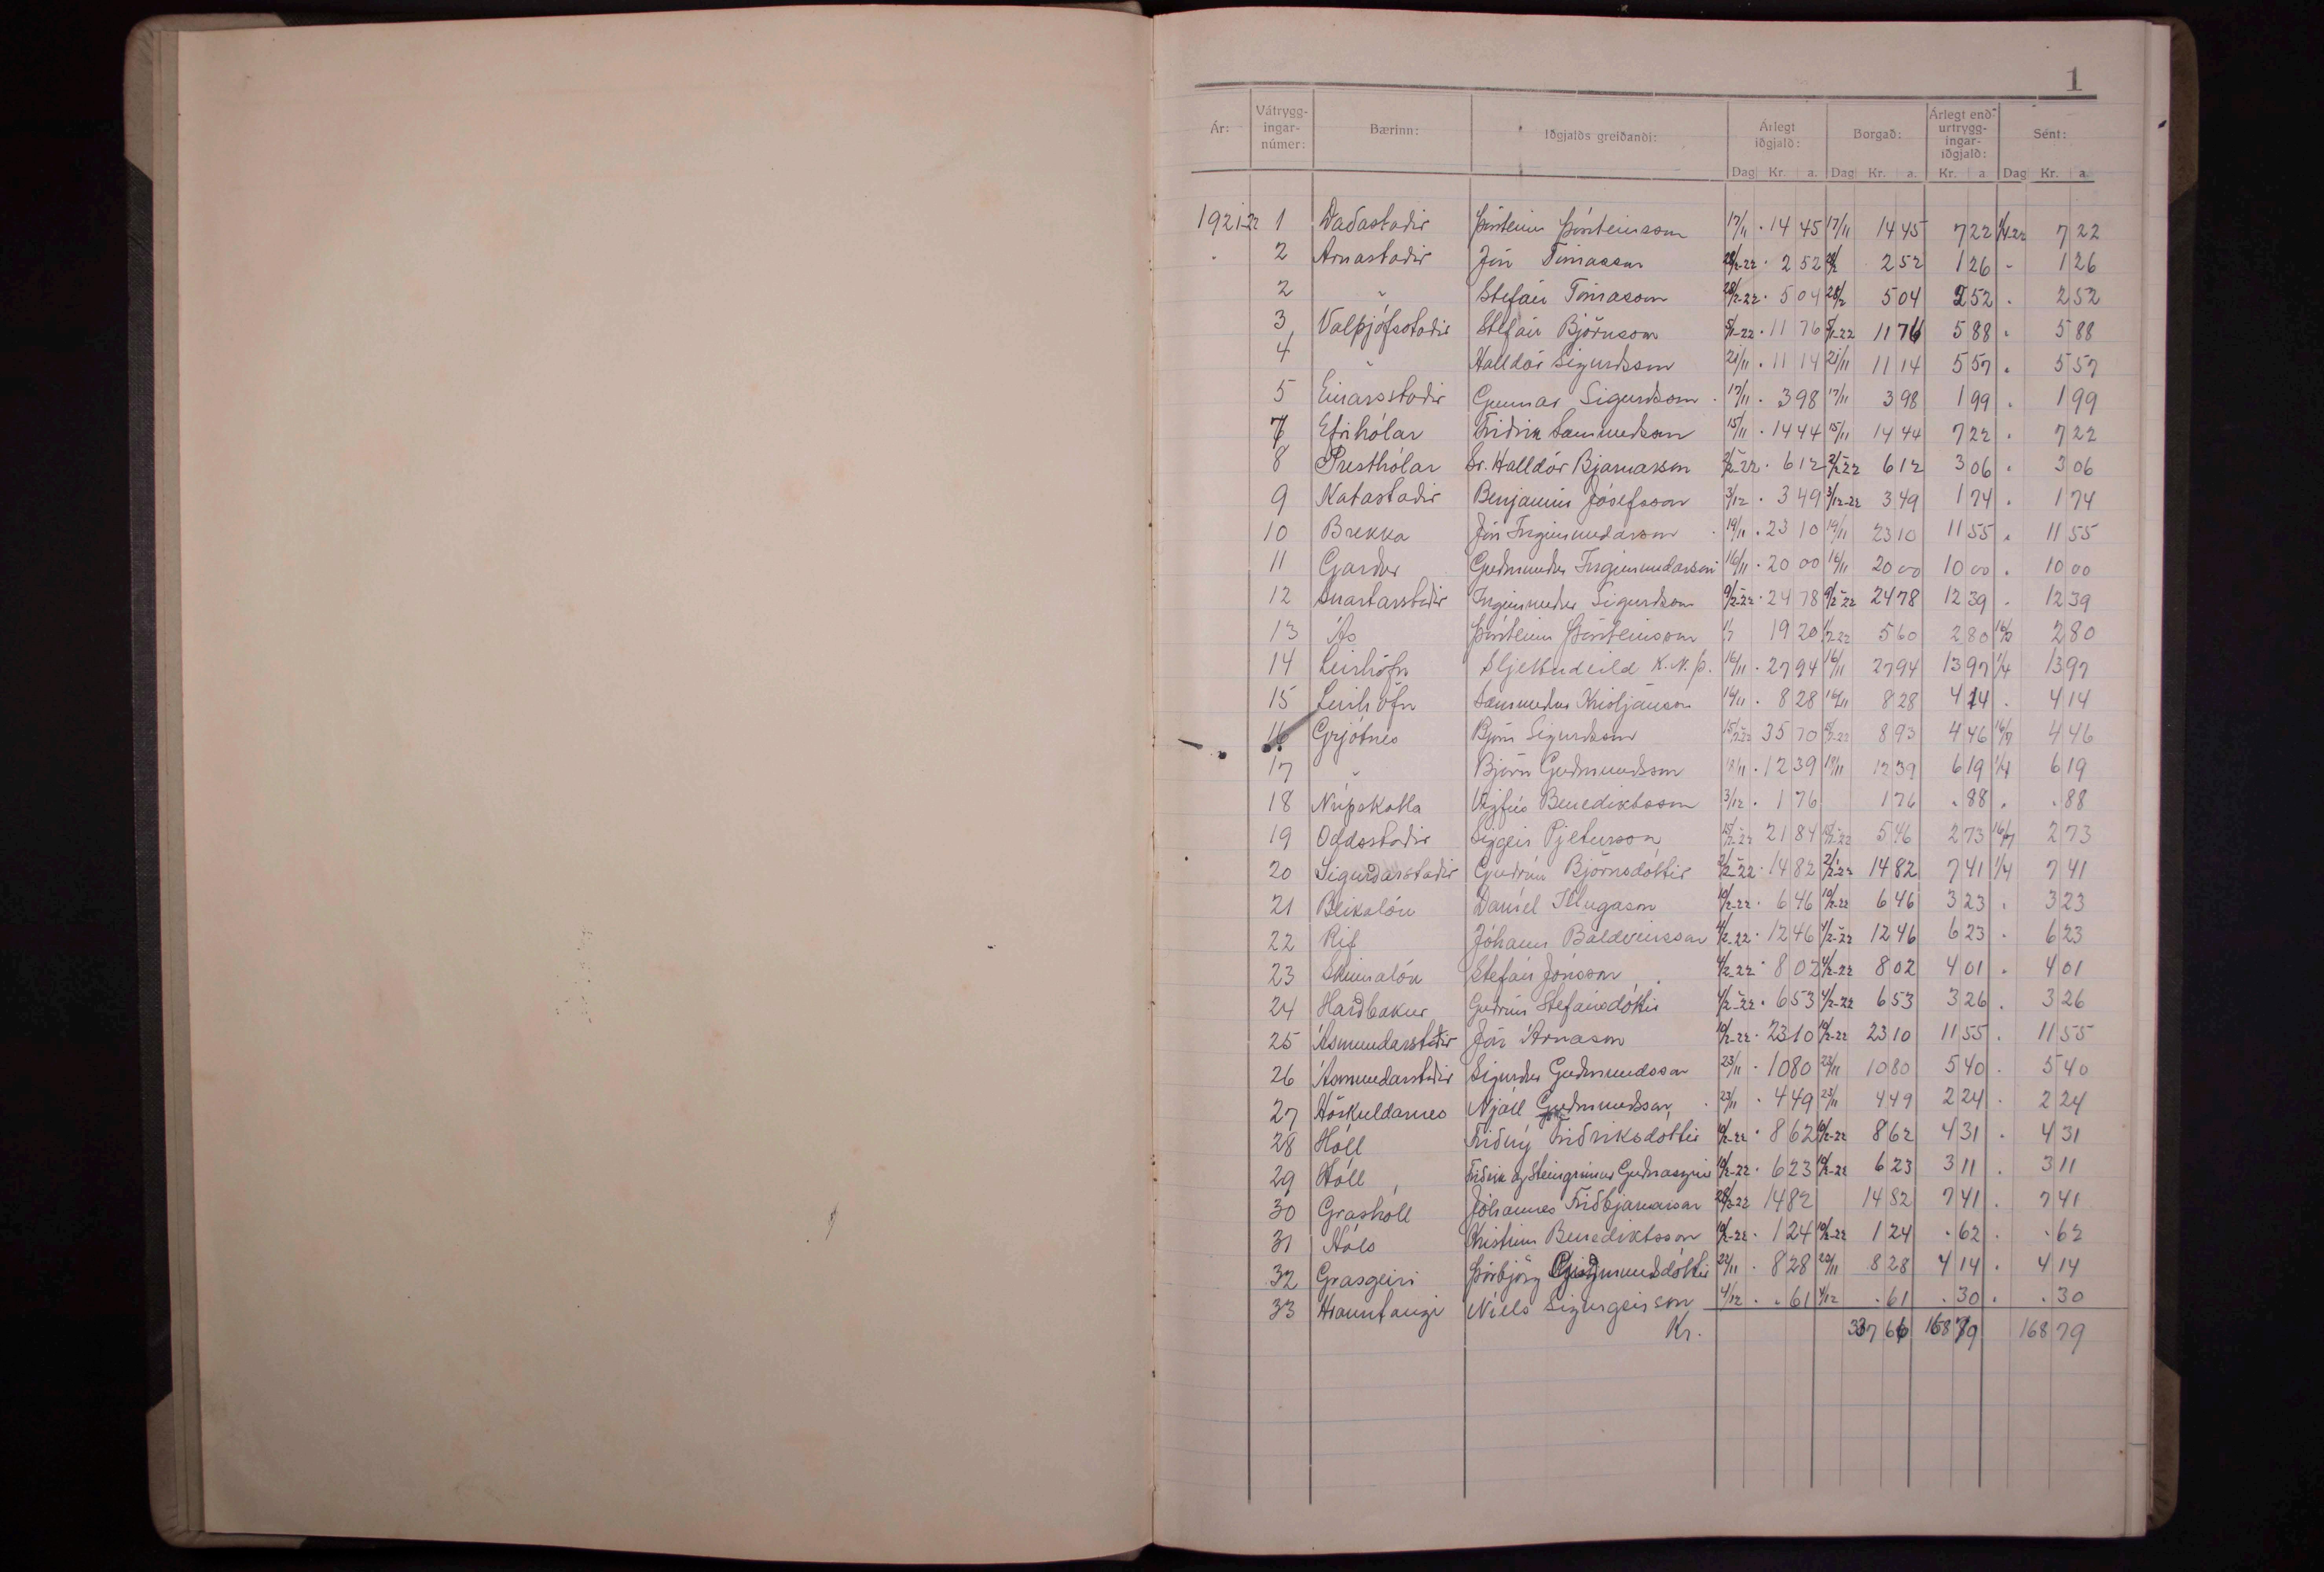 1
Ár: Vátrygg-ingar-númer: Bærinn: Iðgjalds greiðandi: Árlegt iðgjald: Borgað: Árlegt end-urtrygg-ingar-iðgjald: Sént:
Dag Kr. a. Dag Kr. a. Kr. a Dag Kr. a.
1921-22 1 Daðastaðir Þorsteinn Þorsteinsson 17/11 . 14 45 17/11 14 45 7 22 1/4-22 7 22
. 2 Arnastaðir Jón Tómasson 28/2-22 . 2 52 28/2 2 52 1 26 - 1 26
2 " Stefán Tómasson 28/2-22 . 5 04 28/2 5 04 2 52 . 2 52
3 Valþjófsstaðir Stefán Björnsson 5/1-22 . 11 76 5/1-22 11 76 5 88 . 5 88
4 " Halldór Sigurdsson 21/11 . 11 14 21/11 11 14 5 57 . 5 57
5 Einarsstaðir Gunnar Sigurdsson . 17/11 . 3 98 17/11 3 98 1 99 . 1 99
7 Efrihólar Fridrik Sæmundsson 15/11 . 14 44 15/11 14 44 7 22 . 7 22
8 Presthólar Sr. Halldór Bjarnarson 2/2-22 . 6 12 2/2-22 6 12 3 06 . 3 06
9 Katastadir Benjamín Jósefsson 3/12 . 3 49 3/12-22 3 49 1 74 . 1 74
10 Brekka Jón Ingimundarson . 19/11 . 23 10 19/11 23 10 11 55 . 11 55
11 Gardur Gudmundur Ingimundarson 16/11 . 20 00 16/11 20 00 10 00 . 10 00
12 Snartarstadir Ingimundur Sigurdsson 9/2-22 . 24 78 9/2-22 24 78 12 39 . 12 39
13 Ás Þorsteinn Þorsteinsson 19 20 5 60 2 80 2 80
14 Leirhöfn Sljettudeild K.N.Þ. 16/11 . 27 94 16/11 27 94 13 97 1/4 13 97
15 Leirhöfn Sæmundur Kristjánsson 16/11 . 8 28 16/11 8 28 4 14 . 4 14
16 Grjótnes Björn Sigurdsson 35 70 8 93 4 46 4 46
17 " Björn Gudmundsson 18/11 . 12 39 12 39 6 19 1/4 6 19
18 Núpskatla Vigfús Benediktsson 3/12 . 1 76 1 76 . 88 . . 88
19 Oddsstadir Siggeir Pjetursson 21 84 5 46 2 73 2 73
20 Sigurdarstadir Gudrún Björnsdóttir 2/2-22 . 14 82 2/2-22 14 82 7 41 1/4 7 41
21 Blikalón Daníel Illugason 10/2-22 . 6 46 10/2-22 6 46 3 23 . 3 23
22 Rif Jóhann Baldvinsson 4/2-22 . 12 46 4/2-22 12 46 6 23 . 6 23
23 Skinnalón Stefán Jónsson 4/2-22 . 8 02 4/2-22 8 02 4 01 . 4 01
24 Hardbakur Gudrún Stefánsdóttir 4/2-22 . 6 53 4/2-22 6 53 3 26 . 3 26
25 Ásmundarstadir Jón Árnason 10/2-22 . 23 10 10/2-22 23 10 11 55 . 11 55
26 Ásmundarstadir Sigurdur Gudmundsson 23/11 . 10 80 23/11 10 80 5 40 . 5 40
27 Höskuldarnes Njáll Gudmundsson . 23/11 . 4 49 23/11 4 49 2 24 . 2 24
28 Hóll Fridný Fridriksdóttir 10/2-22 . 8 62 10/2-22 8 62 4 31 . 4 31
29 Hóll Fridrik og Steingrímur Gudnasynir 10/2-22 . 6 23 10/2-22 6 23 3 11 . 3 11
30 Gráshóll Jóhannes Fridbjarnarson 28/2-22 14 82 14 82 7 41 . 7 41
31 Hóls Kristinn Benediktsson 10/2-22 . 1 24 10/2-22 1 24 . 62 . . 62
32 Grasgeiri Þorbjörg 22/11 . 8 28 22/11 8 28 4 14 . 4 14
33 Hrauntangi Níels Sigurgeirsson 4/12 . . 61 4/12 . 61 . 30 . . 30
Kr. 337 66 168 79 168 79